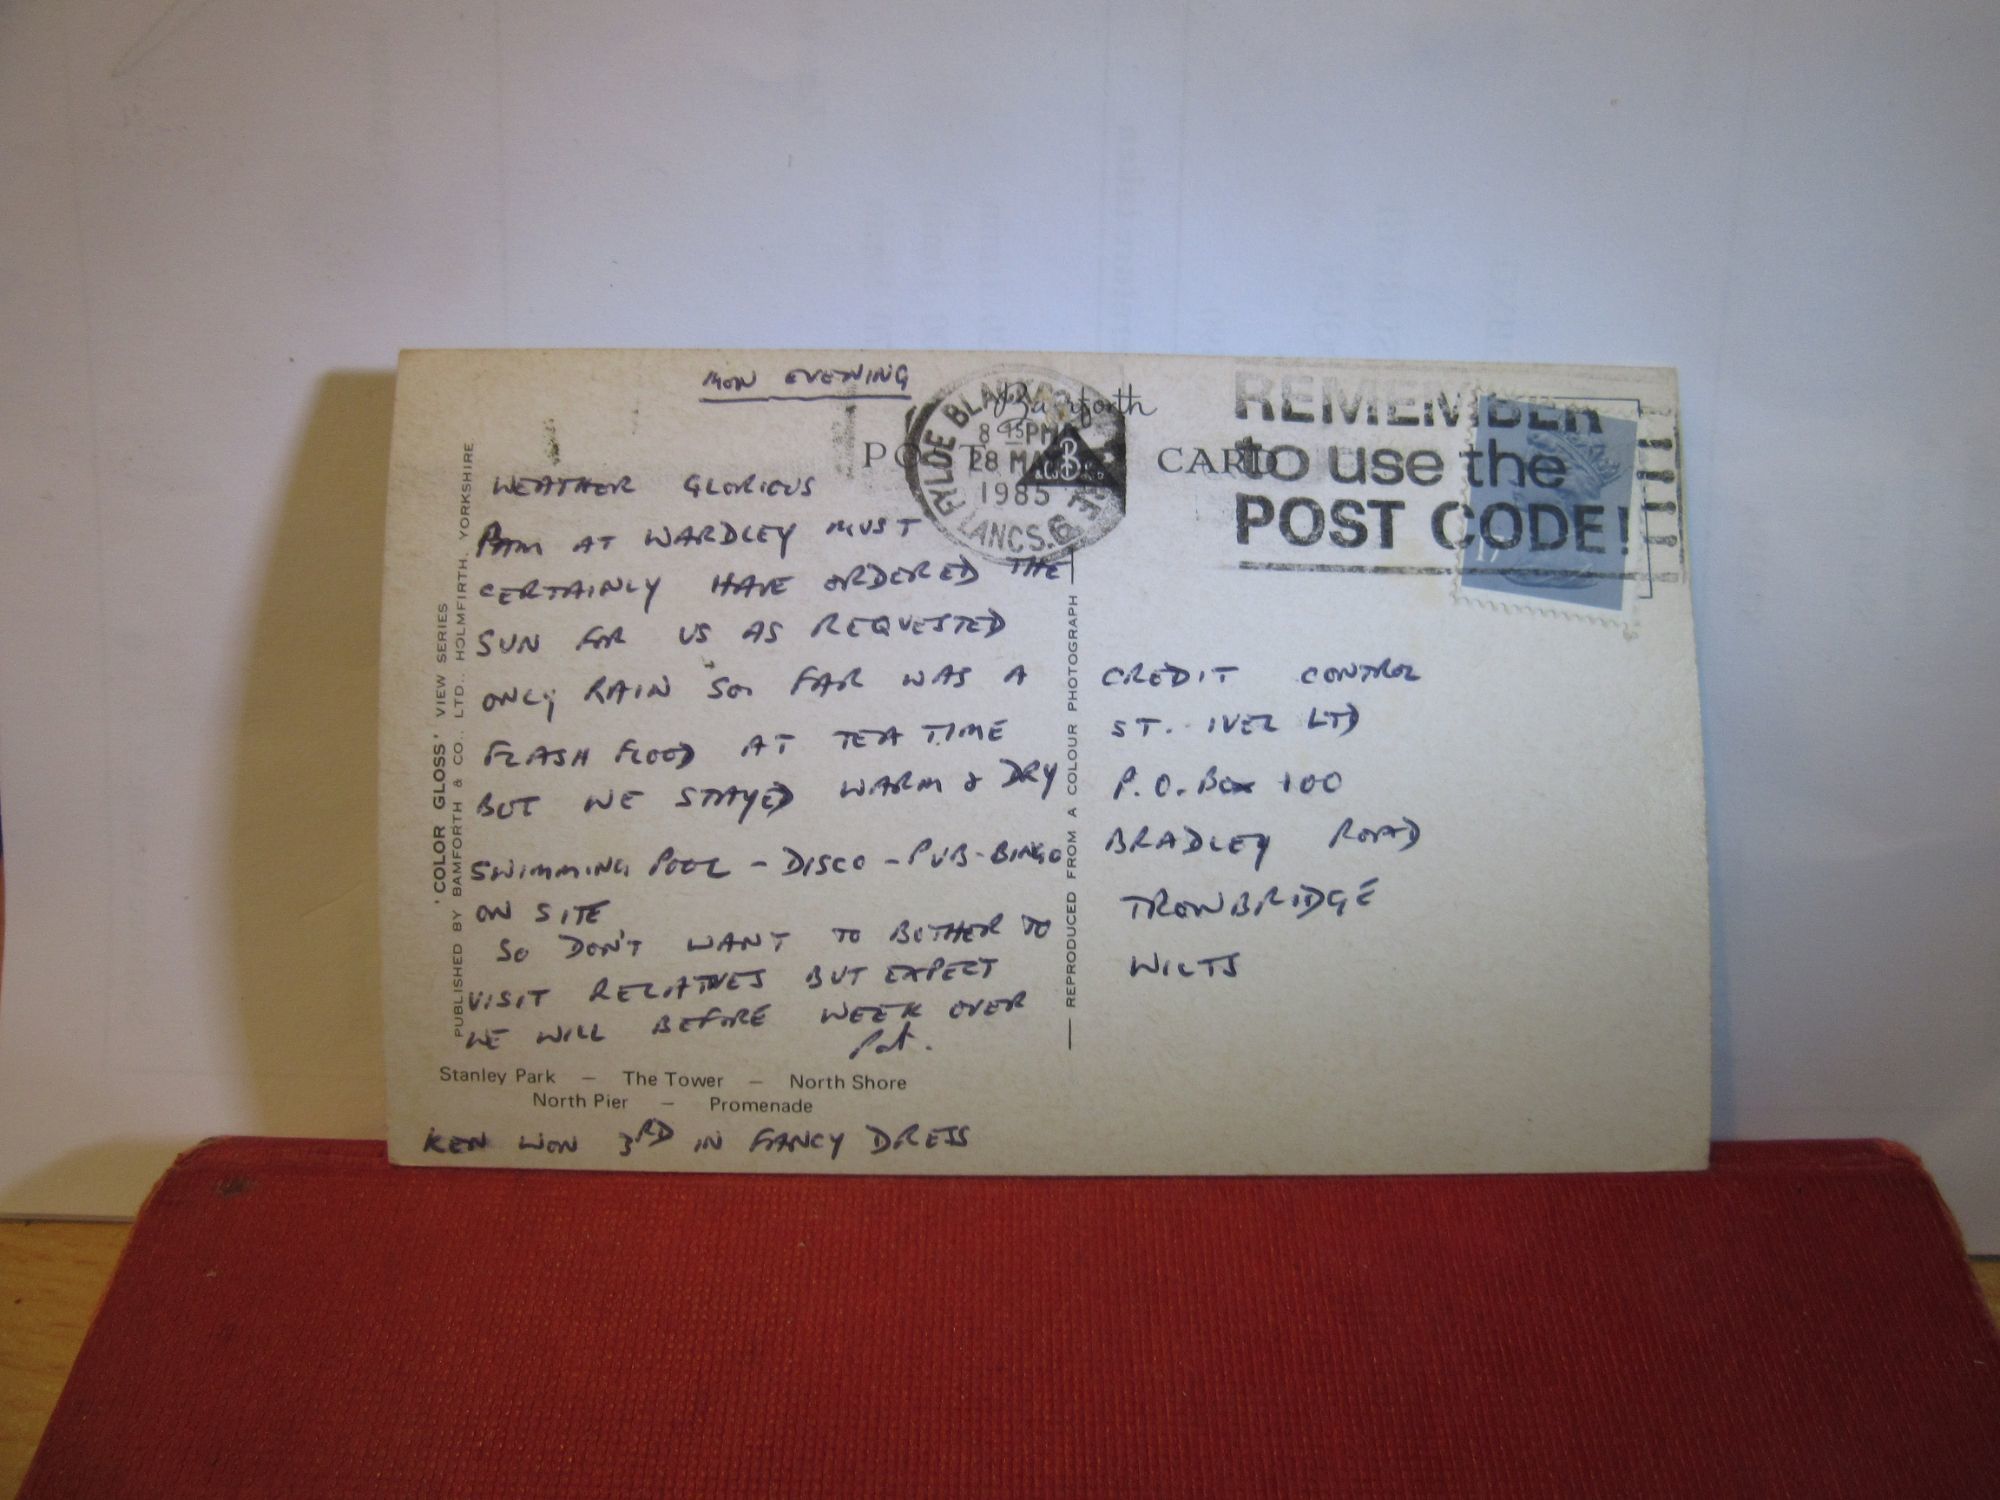 MON EVENING
WEATHER GLORIOUS
PAM AT WARDLEY MUST
CERTAINLY HAVE ORDERED THE
SUN FOR US AS REQUESTED
ONLY RAIN SO FAR WAS A
FLASH FLOOD AT TEA TIME
BUT WE STAYED WARM & DRY
SWIMMING POOL - DISCO - PUB - BINGO
ON SITE
SO DON'T WANT TO BOTHER TO
VISIT RELATIVES BUT EXPECT
WE WILL BEFORE WEEK OVER
Pat.
Stanley Park — The Tower — North Shore
North Pier — Promenade
KEN WON 3RD IN FANCY DRESS
'COLOR GLOSS' VIEW SERIES
PUBLISHED BY BAMFORTH & CO., LTD., HOLMFIRTH, YORKSHIRE
REPRODUCED FROM A COLOUR PHOTOGRAPH
Bamforth
POST CARD
FYLDE BLACKPOOL
8 15 PM
28 MA
1985
LANCS.
REMEMBER
to use the
POST CODE!
17
CREDIT CONTROL
ST. IVEL LTD
P.O. BOX 100
BRADLEY ROAD
TROWBRIDGE
WILTS